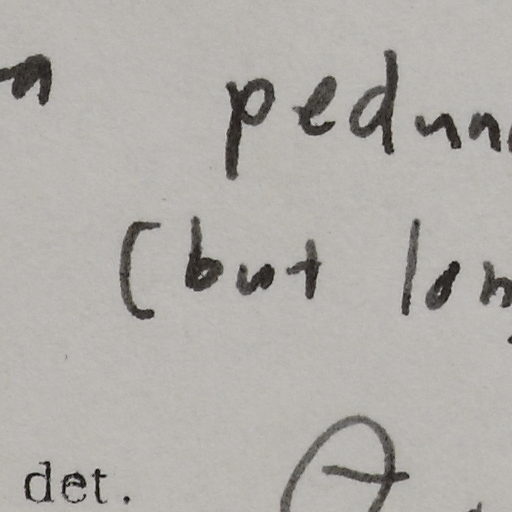 a pedun
(but lon
det.